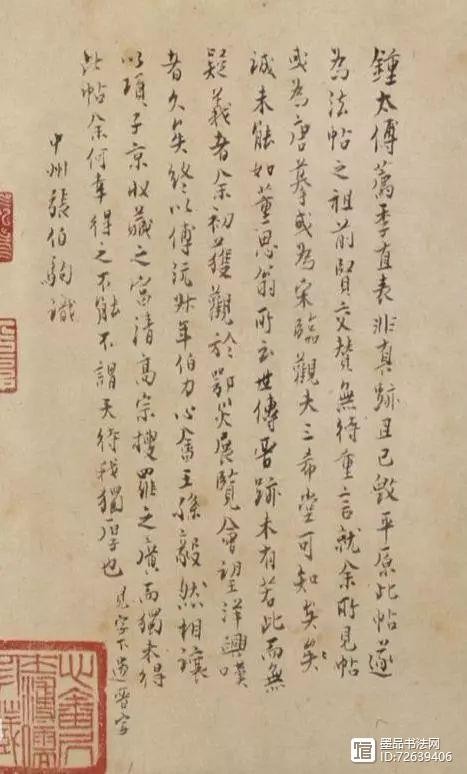 鍾太傅薦季直表非真跡且已毀平原此帖遂
為法帖之祖前賢交贊無待重言就余所見帖
或為唐摹或為宋臨觀夫三希堂可知矣矣
誠未能如董思翁所云世傳晉跡未有若此而無
疑義者余初獲觀於鄂災展覽會望洋興嘆
者久矣終以傅沅叔年伯力心畬王孫毅然相讓
以項子京收藏之富清高宗搜羅之廣而獨未得
此帖余何幸得之不能不謂天待我獨厚也 見字下遺晉字
中州張伯駒識
墨品书法网
ID:72639406